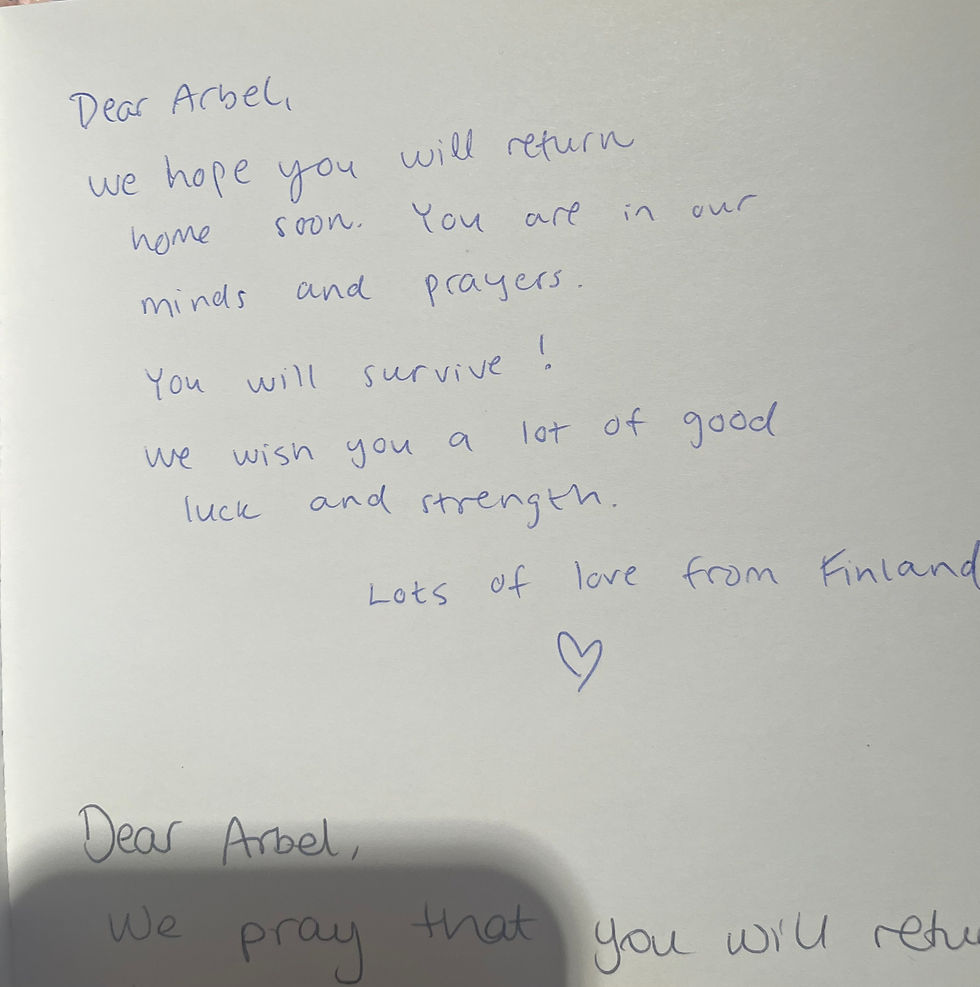 Dear Arbel,
we hope you will return
home soon. You are in our
minds and prayers.
You will survive!
we wish you a lot of good
luck and strength.
Lots of love from Finland
Dear Arbel,
We pray that you will retu